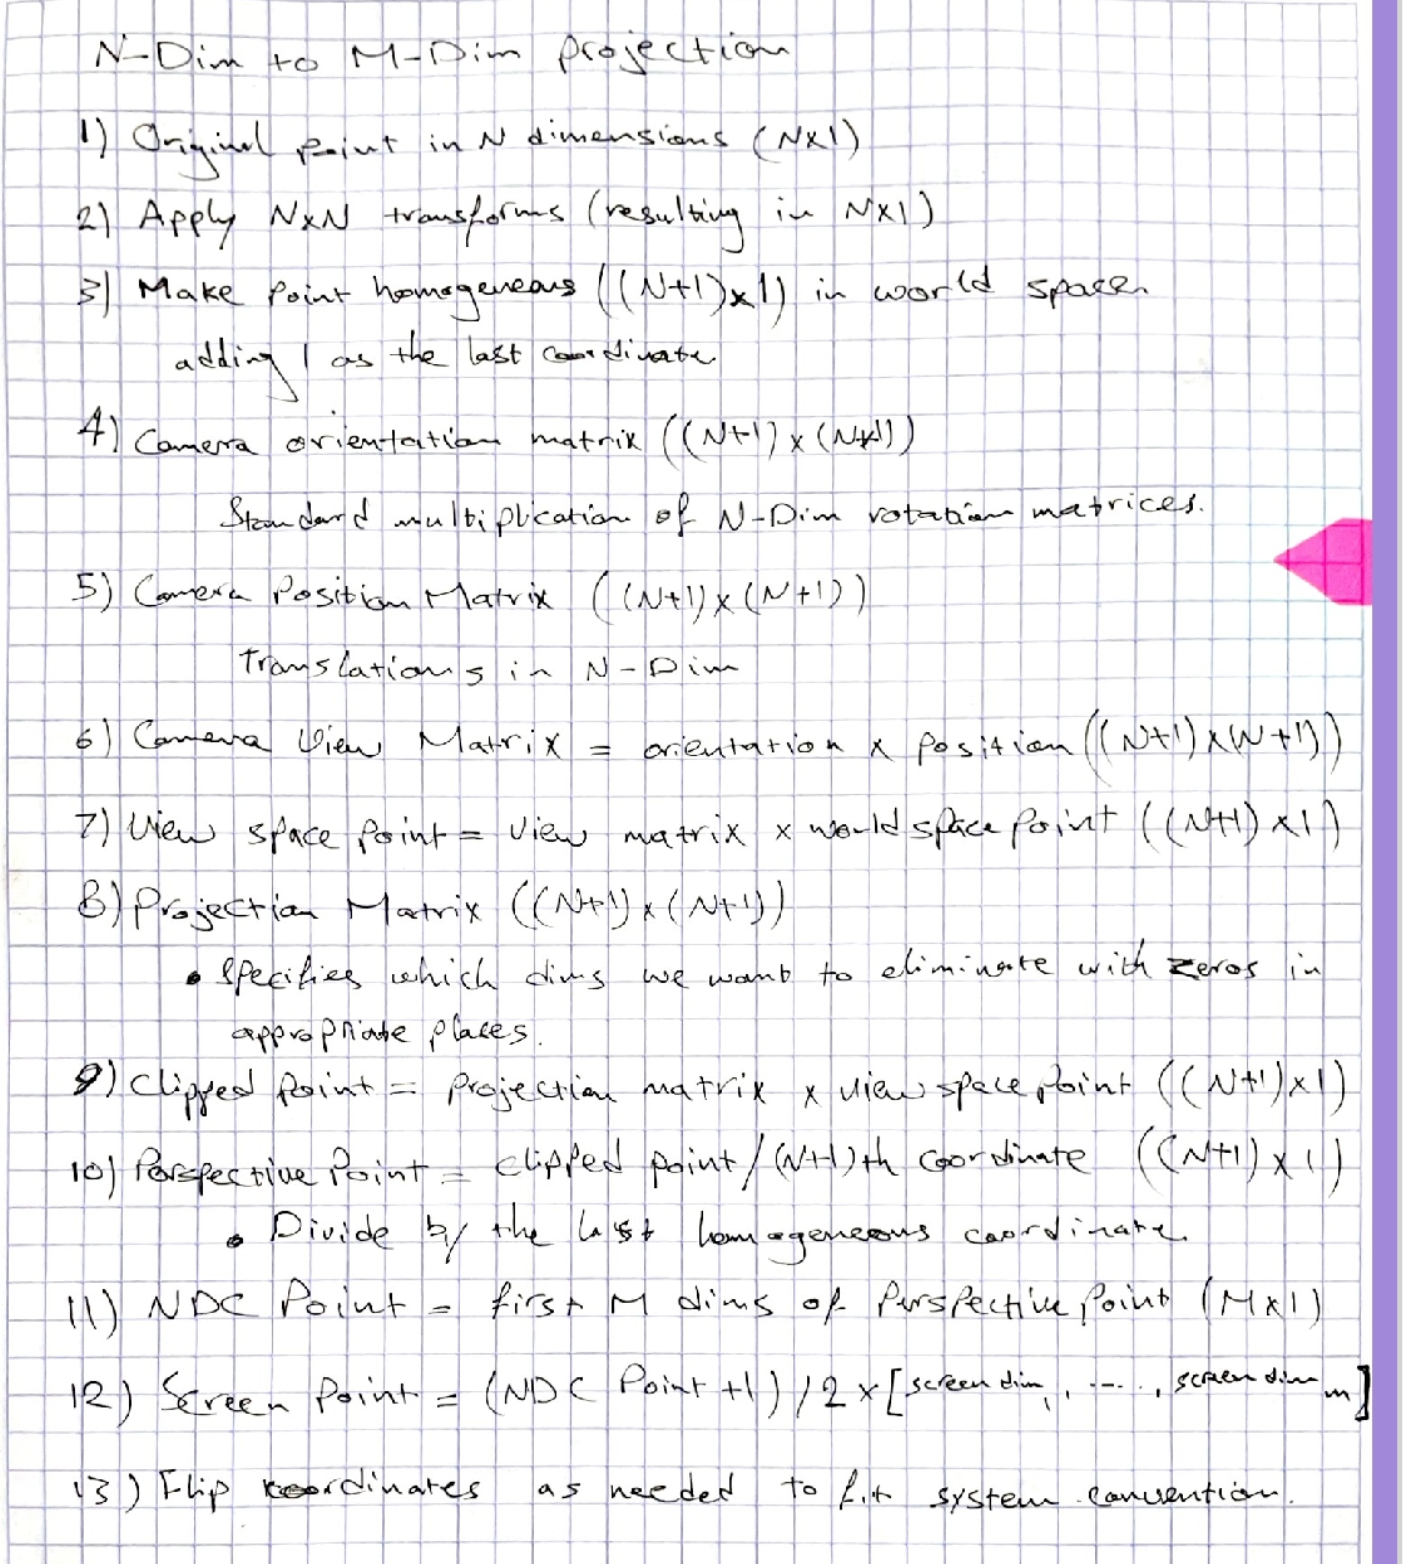 N-Dim to M-Dim projection
1) Original point in N dimensions (Nx1)
2) Apply NxN transforms (resulting in Nx1)
3) Make point homogeneous ((N+1)x1) in world space
adding 1 as the last coordinate
4) Camera orientation matrix ((N+1)x(N+1))
Standard multiplication of N-Dim rotation matrices.
5) Camera Position Matrix ((N+1)x(N+1))
Translations in N-Dim
6) Camera View Matrix = orientation x position ((N+1)x(N+1))
7) View space point = view matrix x world space point ((N+1)x1)
8) Projection Matrix ((N+1)x(N+1))
• Specifies which dims we want to eliminate with zeros in
appropriate places.
9) Clipped point = projection matrix x view space point ((N+1)x1)
10) Perspective Point = clipped point/(N+1)th coordinate ((N+1)x1)
• Divide by the last homogeneous coordinate.
11) NDC Point = first M dims of Perspective Point (Mx1)
12) Screen Point = (NDC Point +1)/2 x [screen dim₁, ...., screen dim m]
13) Flip coordinates as needed to fit system convention.